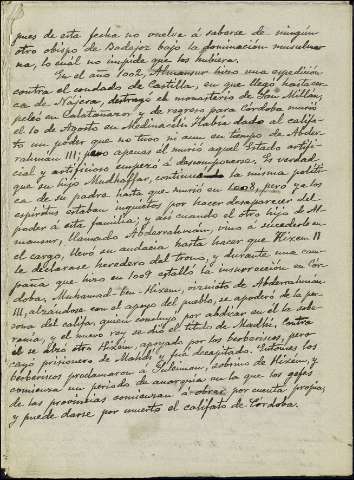 pues de esta fecha no vuelve á saberse de ningún
otro obispo de Badajoz bajo la dominación musulma-
na, lo cual no impide que los hubiera.
En el año 1002, Almansur hizo una expedición
contra el condado de Castilla, en que llegó hasta cer-
ca de Nájera, destruyó el monasterio de San Millán,
peleó en Calatañazor, y de regreso para Córdoba murió
el 10 de Agosto en Medinaceli. Había dado al califa-
to un poder que no tuvo ni aun en tiempo de Abder-
rahman III; pero apenas el murió aquel Estado artifi-
cial y artificioso empezó á descomponerse. Es verdad
que su hijo Mudhaffar, continuó la misma políti-
ca de su padre hasta que murió en 1008, pero ya los
espíritus estaban inquietos por hacer desaparecer del
poder á esta familia; y así cuando el otro hijo de Al-
mansur, llamado Abderrahman, vino á sucederle en
el cargo, llevó su audacia hasta hacer que Hixem II
le declarase heredero del trono, y durante una cam-
paña que hizo en 1009 estalló la insurrección en Cór-
doba, Muhamad-ben-Hixem, viznieto de Abderrahman
III, alzandose con el apoyo del pueblo, se apoderó de la per-
sona del califa, quien concluyó por abdicar en él la sobe-
ranía, y el nuevo rey se dió el título de Madhi, Contra
él se alzó otro Hixem, apoyado por los berberiscos, pero
cayó prisionero de Mahdi y fué decapitado. Entonces los
berberiscos proclamaron á Suleiman, sobrino de Hixem, y
comienza un periodo de anarquía en la que los gefes
de las provincias comienzan á obrar por cuenta propia,
y puede darse por muerto el califato de Cordoba.